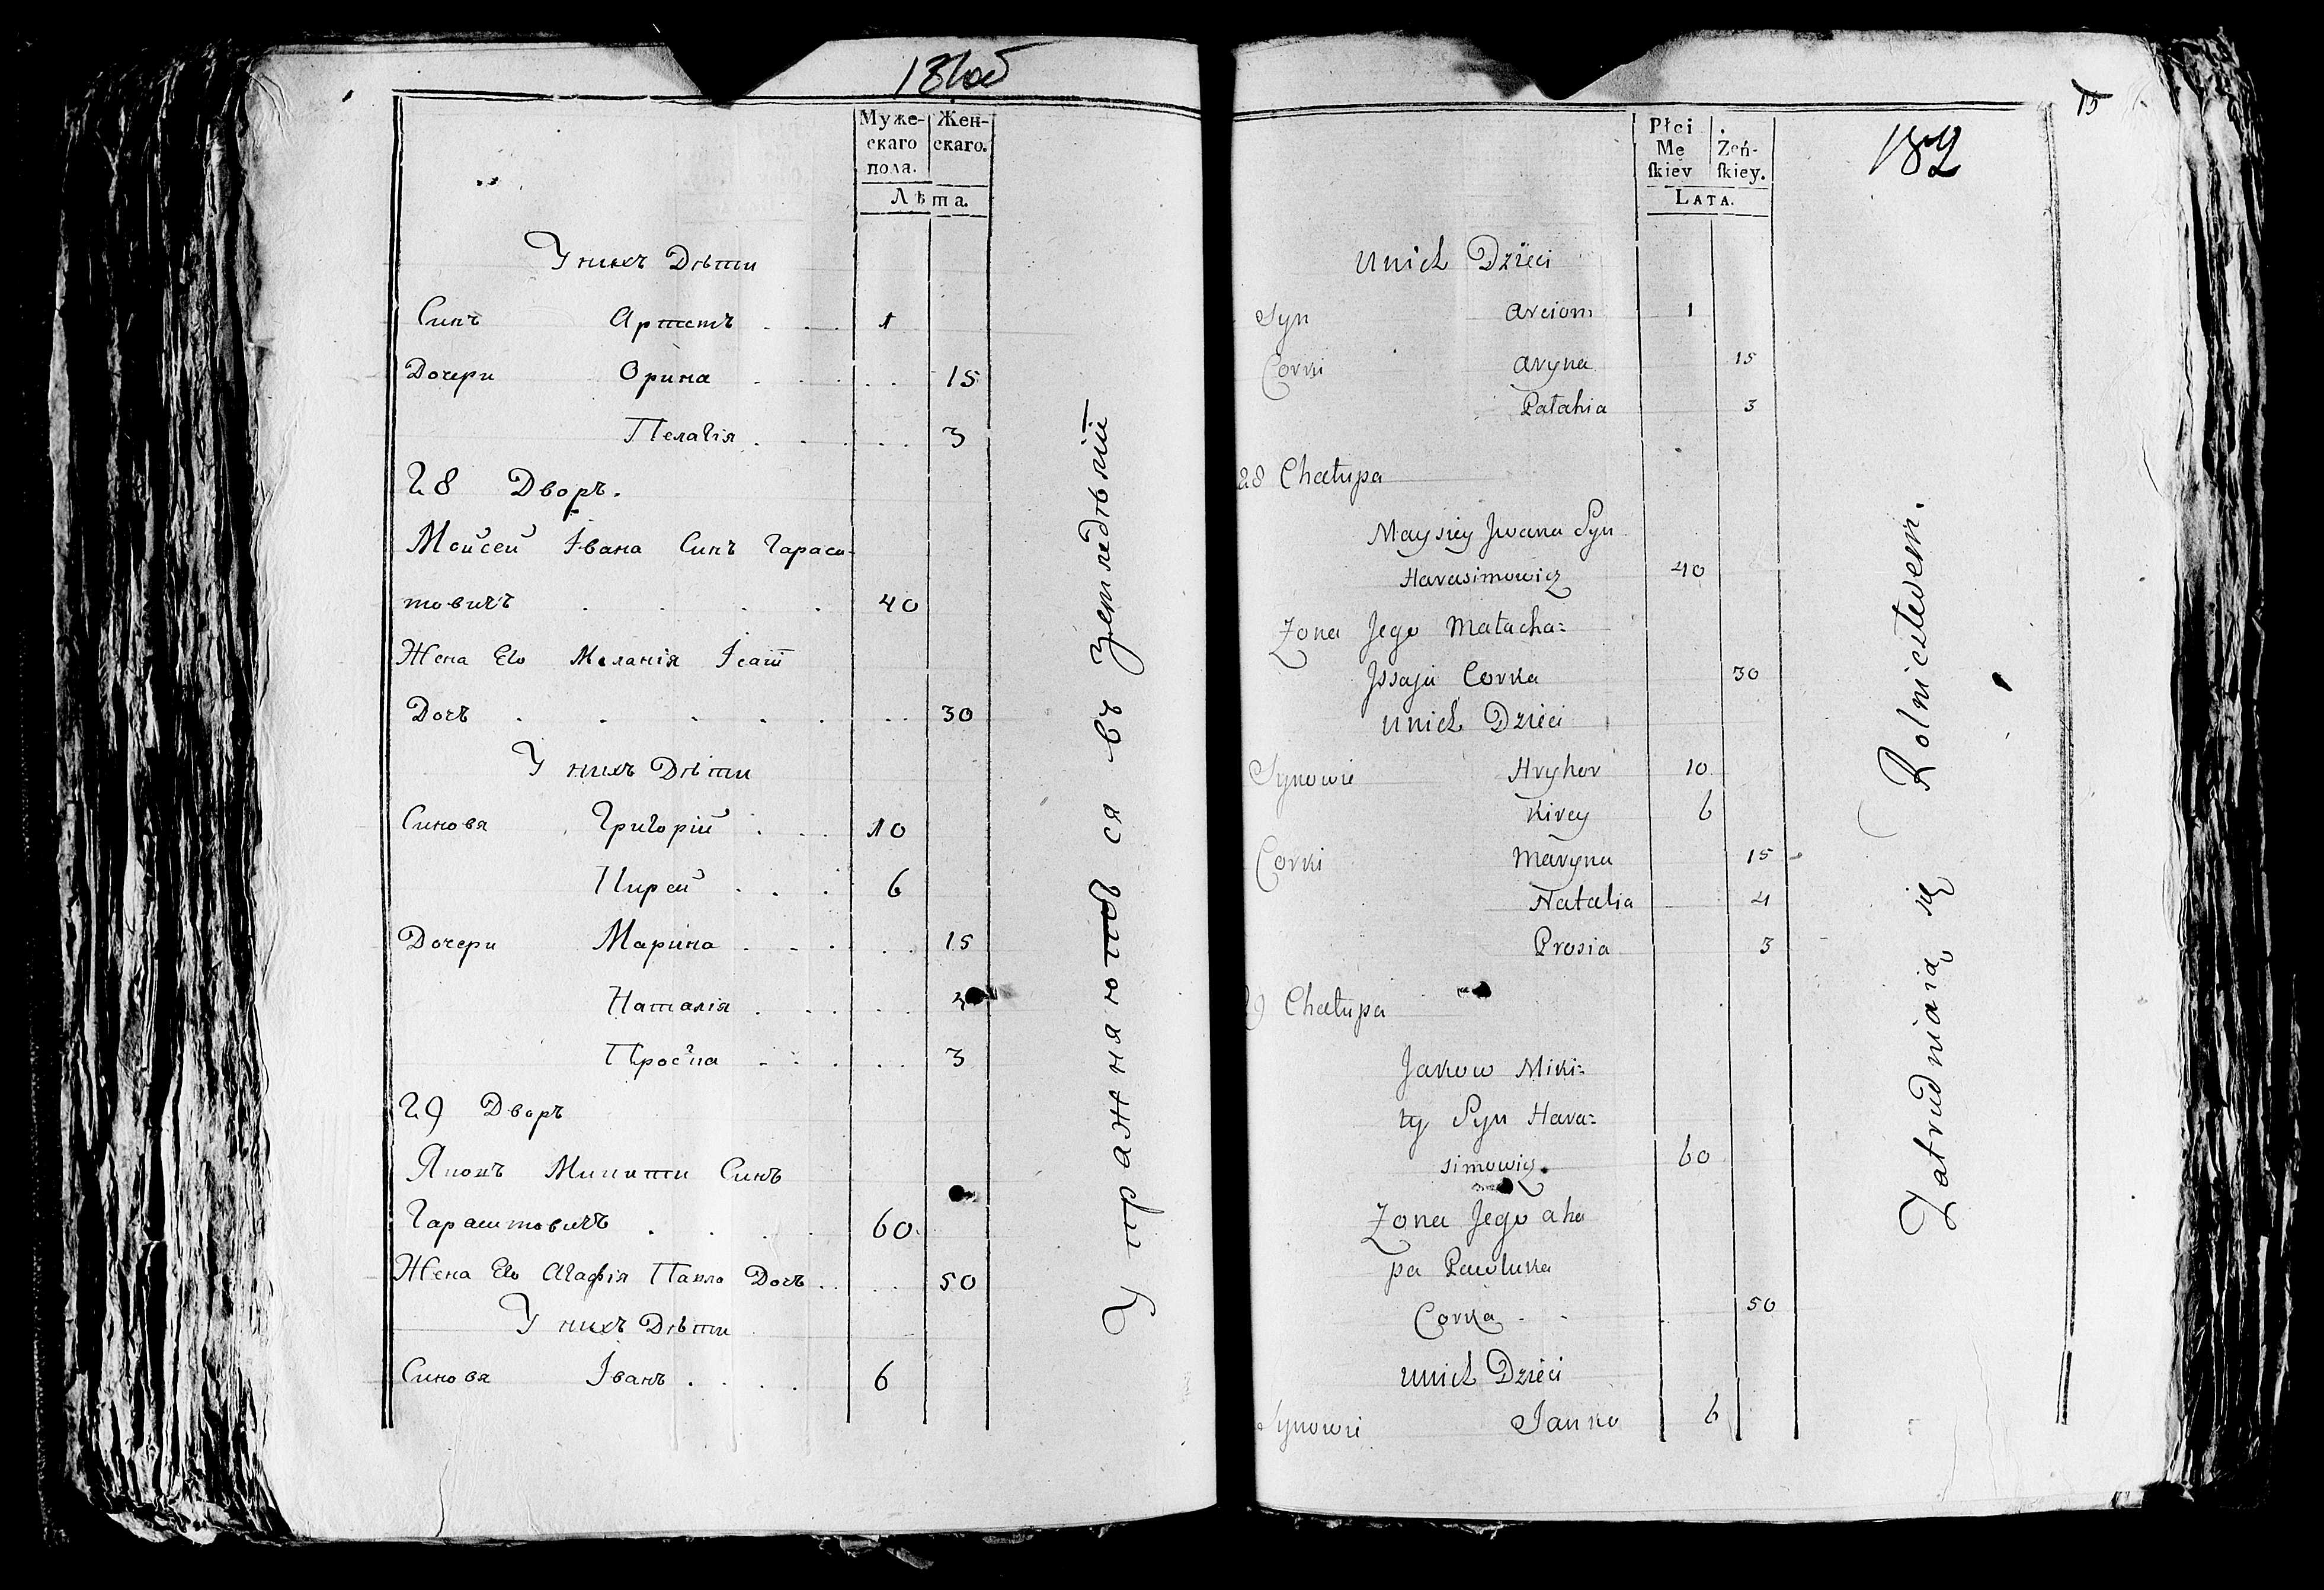 181об
Муже- Жен-
скаго скаго.
пола.
Лѣта.
У нихъ Дѣти
Синъ Артемъ . . 1
Дочери Орина . . . . 15
Пелагія . . . . 3
28 Дворъ.
Мойсей Івана Синъ Гараси-
мовичъ . . . . 40
Жена Его Меланія Ісаіи
Дочъ . . . . . . 30
У нихъ Дѣти
Синовя Григорій . . 10
Кирей . . . 6
Дочери Марина . . . . 15
Наталія . . . . 4
Просїа . . . . 3
29 Дворъ
Яковъ Микити Синъ
Гарасимовичъ . . . . 60.
Жена Его Агафія Павло Дочъ . . . 50
У нихъ Дѣти
Синовя Іванъ . . . . 6
Упражняются въ Земледѣліи
15
182
Płci Żeń-
Mę ſkiey.
ſkiey
LATA.
Unich Dzieci
Syn Arciom 1
Corki Aryna 15
Pałahia 3
28 Chałupa
Maysiey Jwana Syn
Harasimowicz 40
Zona Jego Małacha=
Jssaja Corka 30
Unich Dzieci
Synowie Hryhor 10
Kirey 6
Corki Maryna 15
Natalia 4
Prosia 3
29 Chałupa
Jakow Miki=
ty Syn Hara=
simowicz. 60
Zona Jego aha
pa Pawluka
Corka . . 50
Unich Dzieci
Synowie Janko 6
Zatrudniaią się Rolnictwem.